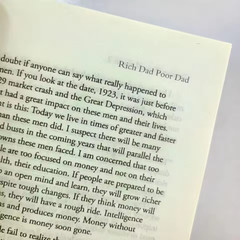 Rich Dad Poor Dad
doubt if anyone can say what really happened to
men. If you look at the date, 1923, it was just before
29 market crash and the Great Depression, which
t had a great impact on these men and their lives.
t is this: Today we live in times of greater and faster
than these men did. I suspect there will be many
d busts in the coming years that will parallel the
downs these men faced. I am concerned that too
le are too focused on money and not on their
lth, their education. If people are prepared to be
p an open mind and learn, they will grow richer
spite tough changes. If they think money will
s, they will have a rough ride. Intelligence
s and produces money. Money without
gence is money soon gone.
le fail to realize th